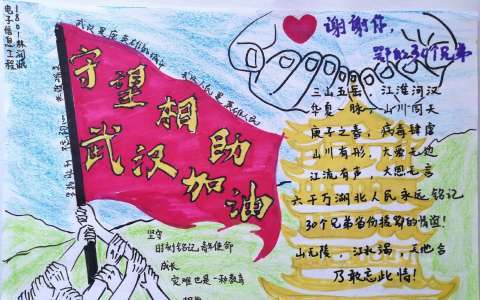 1801林润誠
电子信息工程
武汉是座英雄的城市
武汉人民是英雄人民
守望相助
武汉加油
谢谢你，
鄂的30个兄弟
三山五岳，江淮河汉
华夏一脉，山川同天
庚子之春，病毒肆虐
山川有形，大爱无边
江流有声，大恩无言
六千万湖北人民永远铭记
30个兄弟省份援鄂的情谊！
山无陵，江水竭，天地合
乃敢忘此情！
坚守
时刻铭记青年使命
成长
灾难也是一种教育